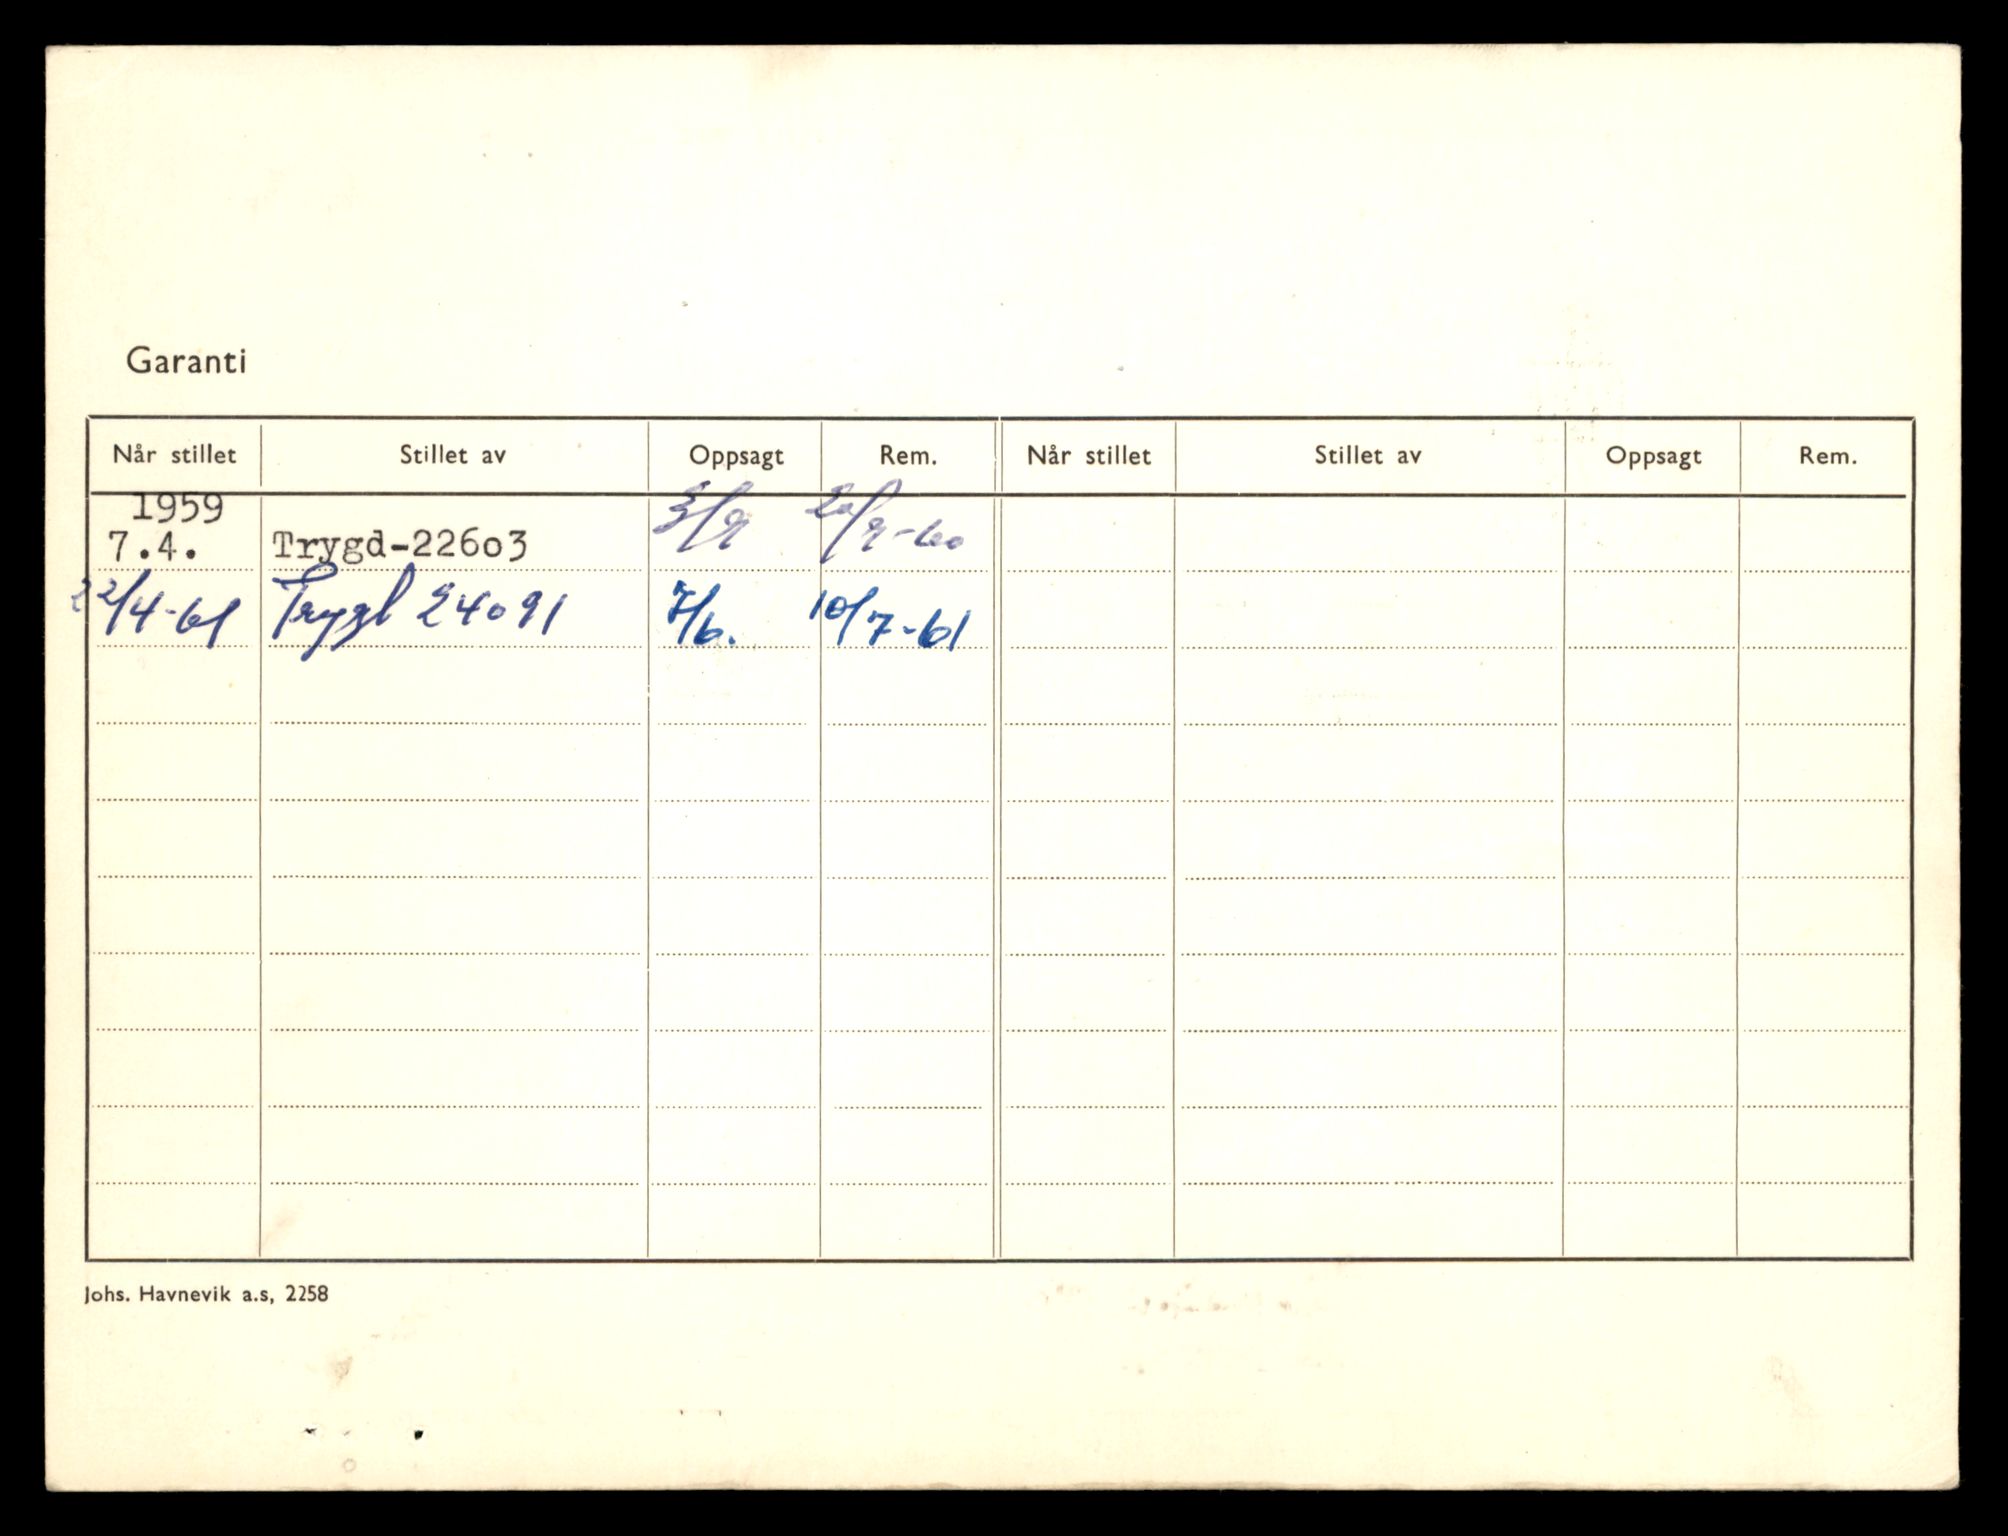 Garanti
Når stillet Stillet av Oppsagt Rem. Når stillet Stillet av Oppsagt Rem.
1959
7.4. Trygd-22603 3/9 20/9-60
22/4-61 Trygd 24091 7/6. 10/7-61
Johs. Havnevik a.s, 2258